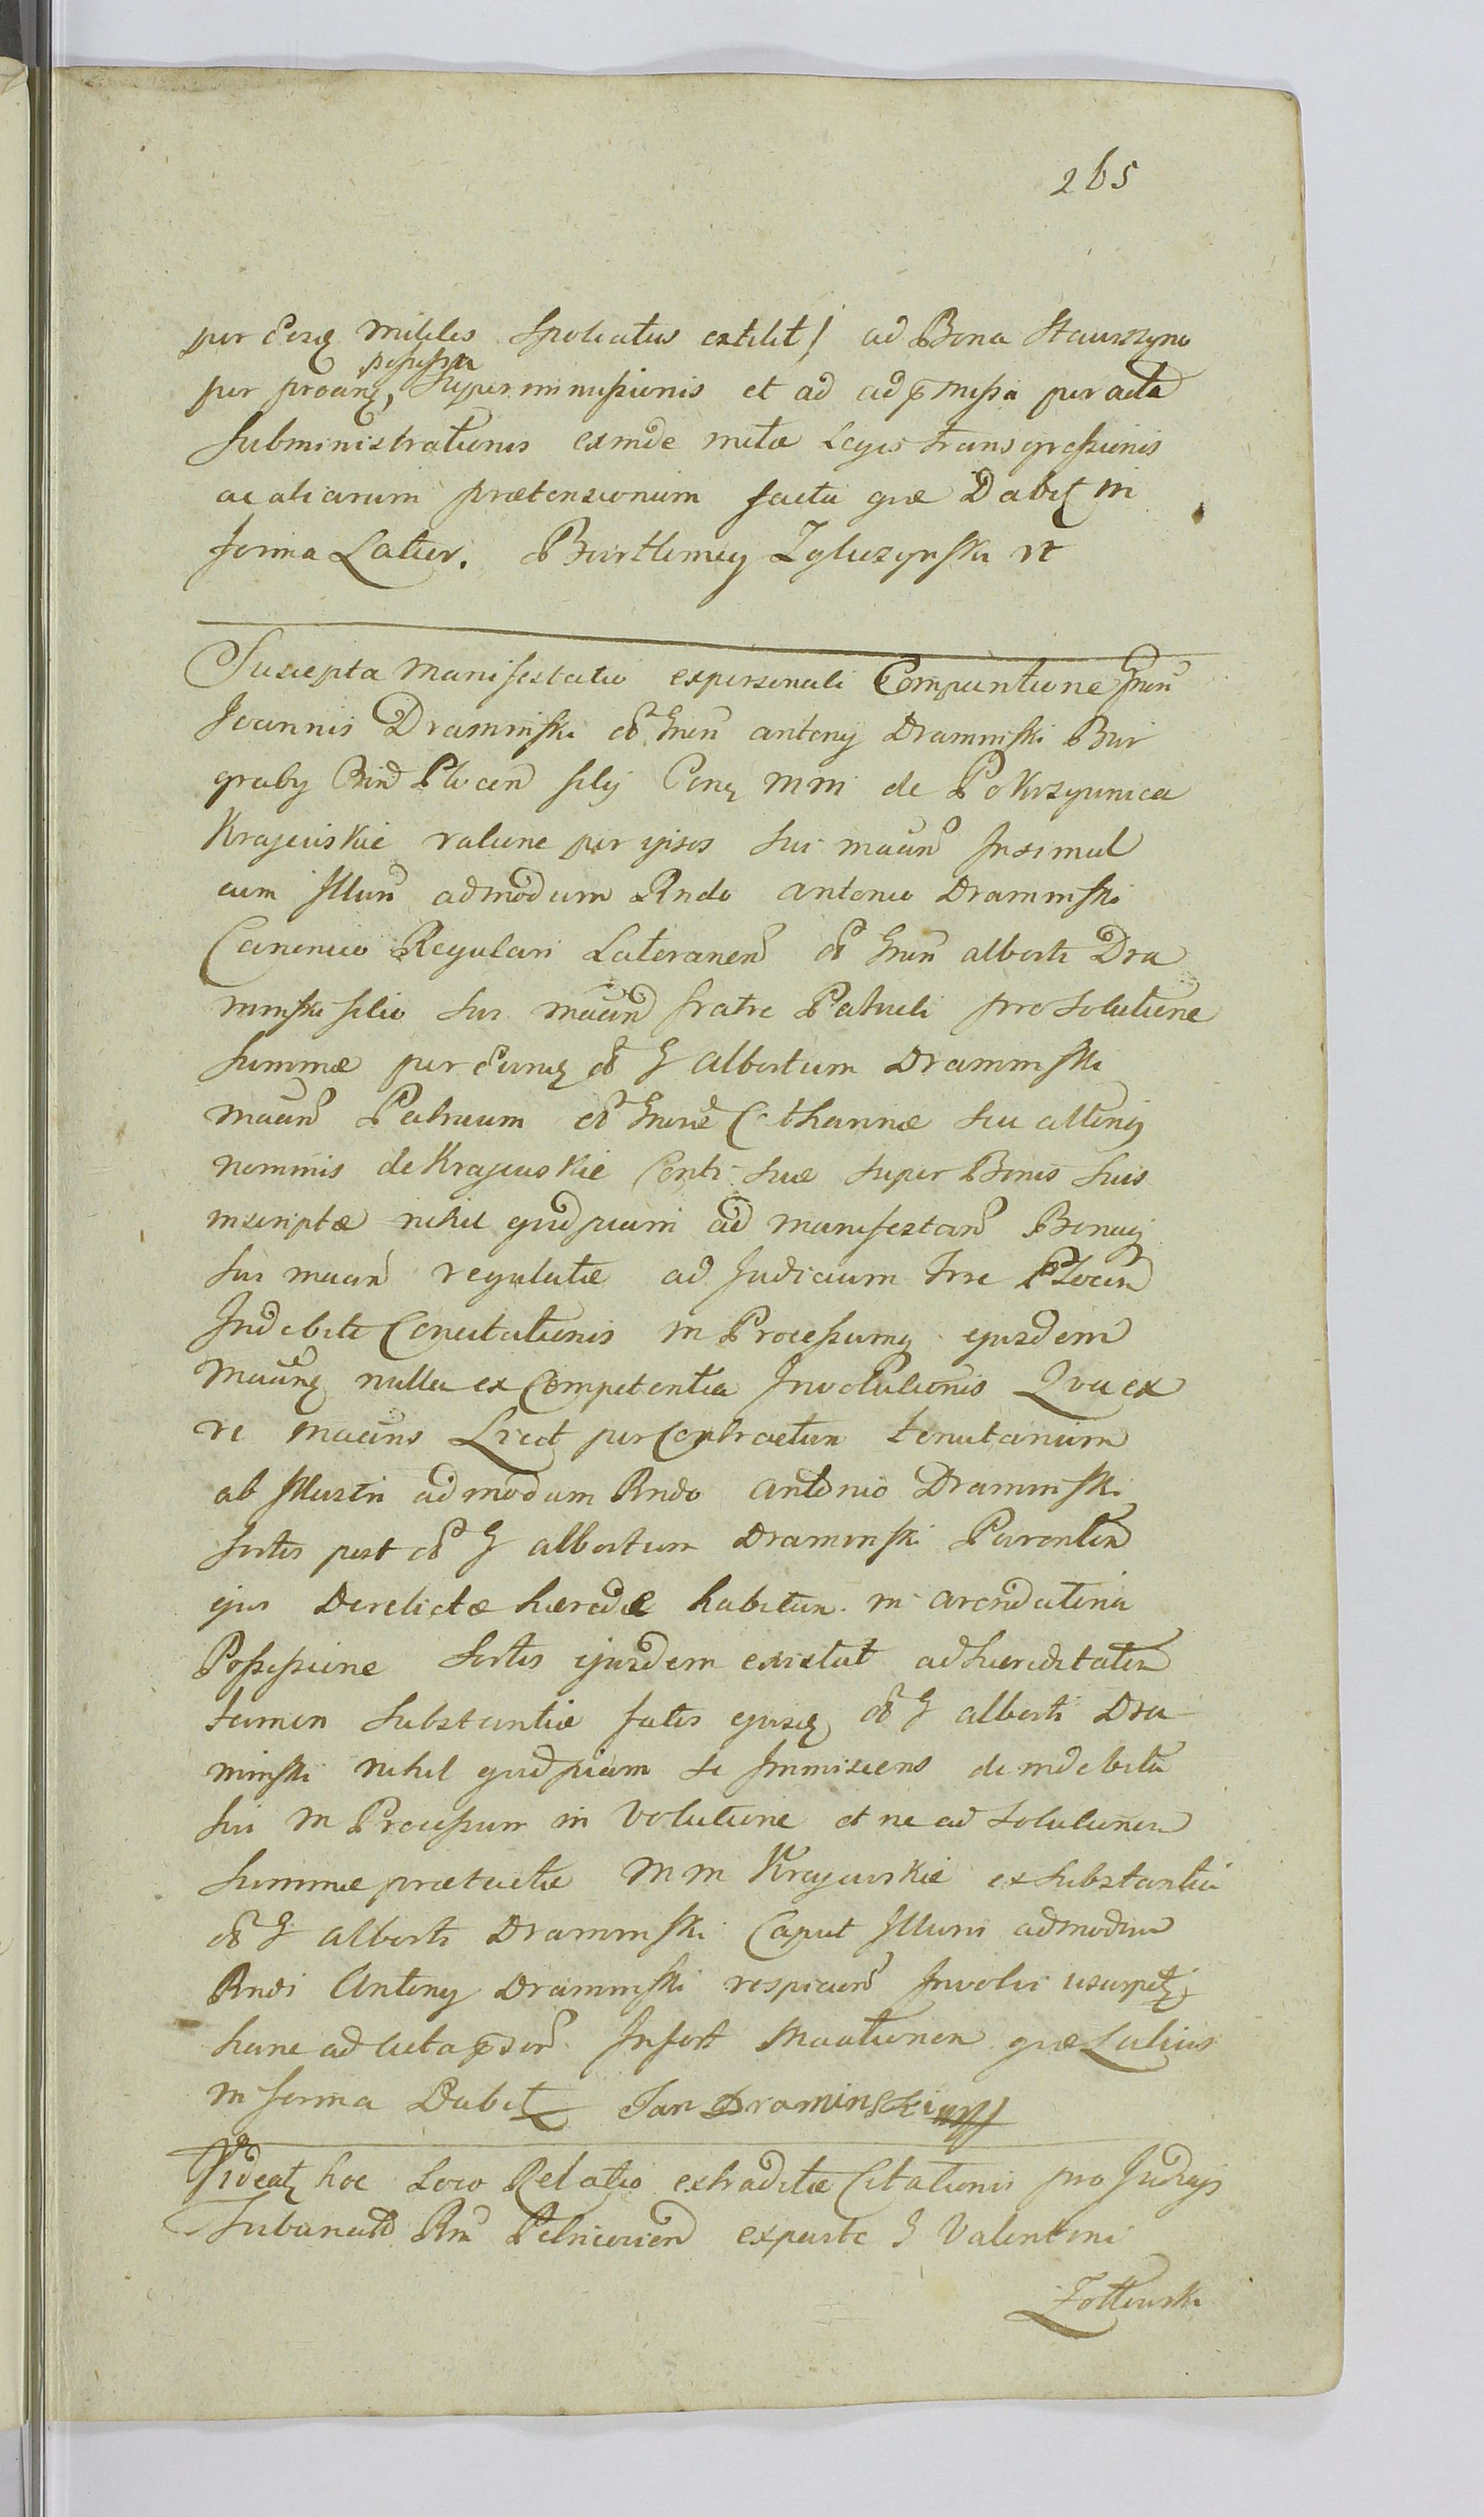 265
per eosq milites spoliatus extitit / ad Bona Staurzyno
possessa
per proanq, superimmissionis et ad ad pmissa peracta
subministrationis exinde mitæ Legis transgressionis
ac aliarum prætensionum facta quæ Dabit in
forma Latior. Bartlomiey Zgliczynski
Suscepta Manifestatio expersonali Compartione Gnen
Joannis Draminski Gnen antony Draminski Bur
graby Plocen filij MM de Pokrzywnica
Krajewskie ratione per ipsos sui maan Insimul
cum Illun admodum Rndo Antonio Draminski
Canonico Regulari Lateranen Gnen alberti Dra
minski filio sui maan fratre Patrueli pro solutione
summæ per eunq G Albertum Draminski
maan Patruum Catharinæ seu alterig
nominis de Krajewskie Conti suæ super Bonis suis
inscriptæ nihil quidpiam ad manifestan Bonaq
sui maan regulatæ ad Judicium Trre Plocen
Indebite Concitationis in Processumq ejusdem
maanq nulla ex Competentia Involutionis Qua ex
re maans Licet per Contractum tenutarium
ab Illustri admodum Rndo Antonio Draminski
sortis post G albertum Draminski Parentem
ejus Derelictæ hæredæ habitum in arendatoria
Possessione sortis ejusdem existat ad hæreditatem
tamen substantiæ fatis ejusq G alberti Dra
minski nihil quidpiam se Immiscens de indebita
sui in Processum in volutione et ne ad solutionem
summæ prætactæ MM Krajewskie ex substantia
G alberti Draminski Caput Illuni admodum
Rndi Antony Draminski respicien Involvi
hanc ad acta Infert Maationem quæ Latius
in forma Dabit Jan Draminski mpp
Videatz hoc Loco Relatio extraditæ Citationis pro Judicijs
exparte G Valentini
Zottowski